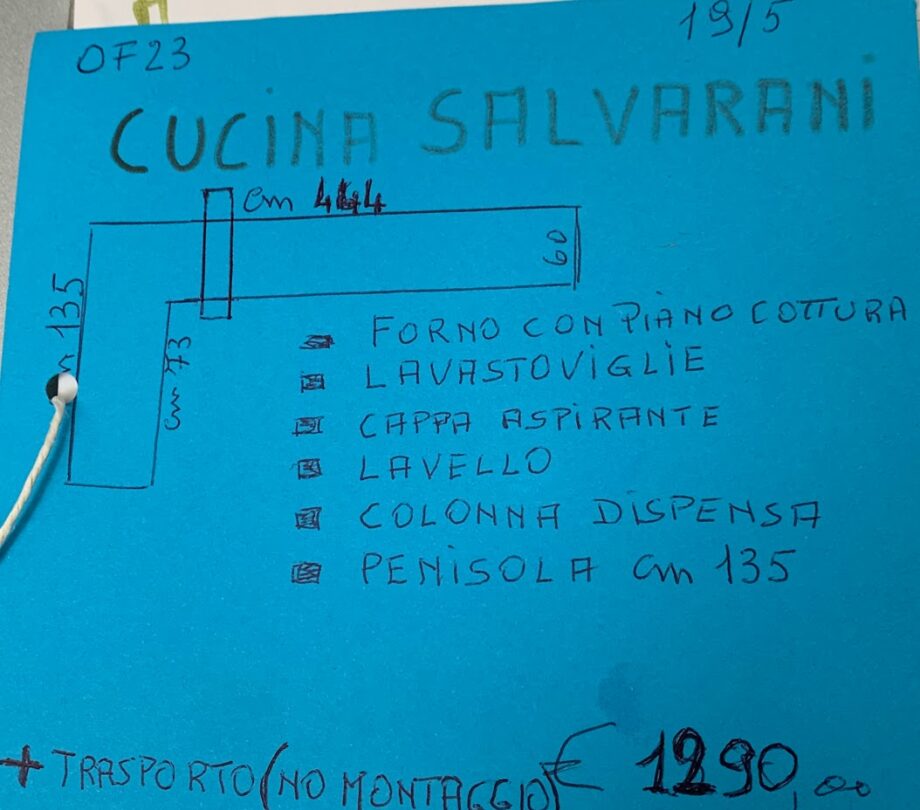 OF23
19/5
CUCINA SALVARANI
cm 444
60
135
cm 73
FORNO CON PIANO COTTURA
LAVASTOVIGLIE
CAPPA ASPIRANTE
LAVELLO
COLONNA DISPENSA
PENISOLA cm 135
+ TRASPORTO (NO MONTAGGIO) € 1290,00